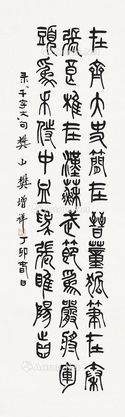 在齊太史簡在晉董狐筆在秦
張良椎在漢蘇武節為嚴將軍
頭為嵇侍中血為張睢陽齒
樊山樊增祥丁卯日